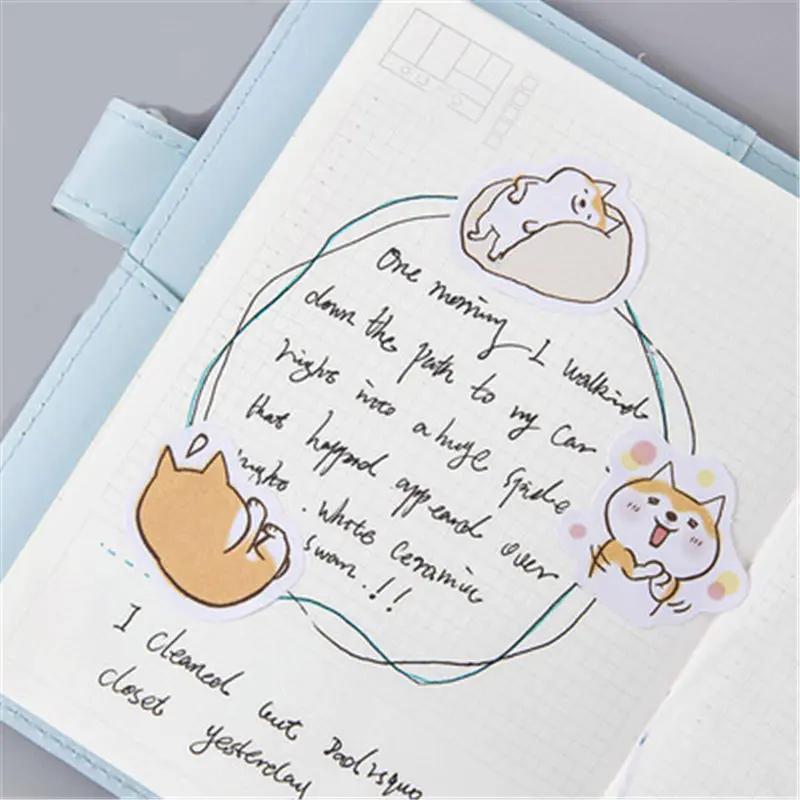 One morning I walkind
down the path to my car.
right into a huge spide
that happend appeard over
night. White Ceramic
swan.!!
I cleaned out
closet yesterday